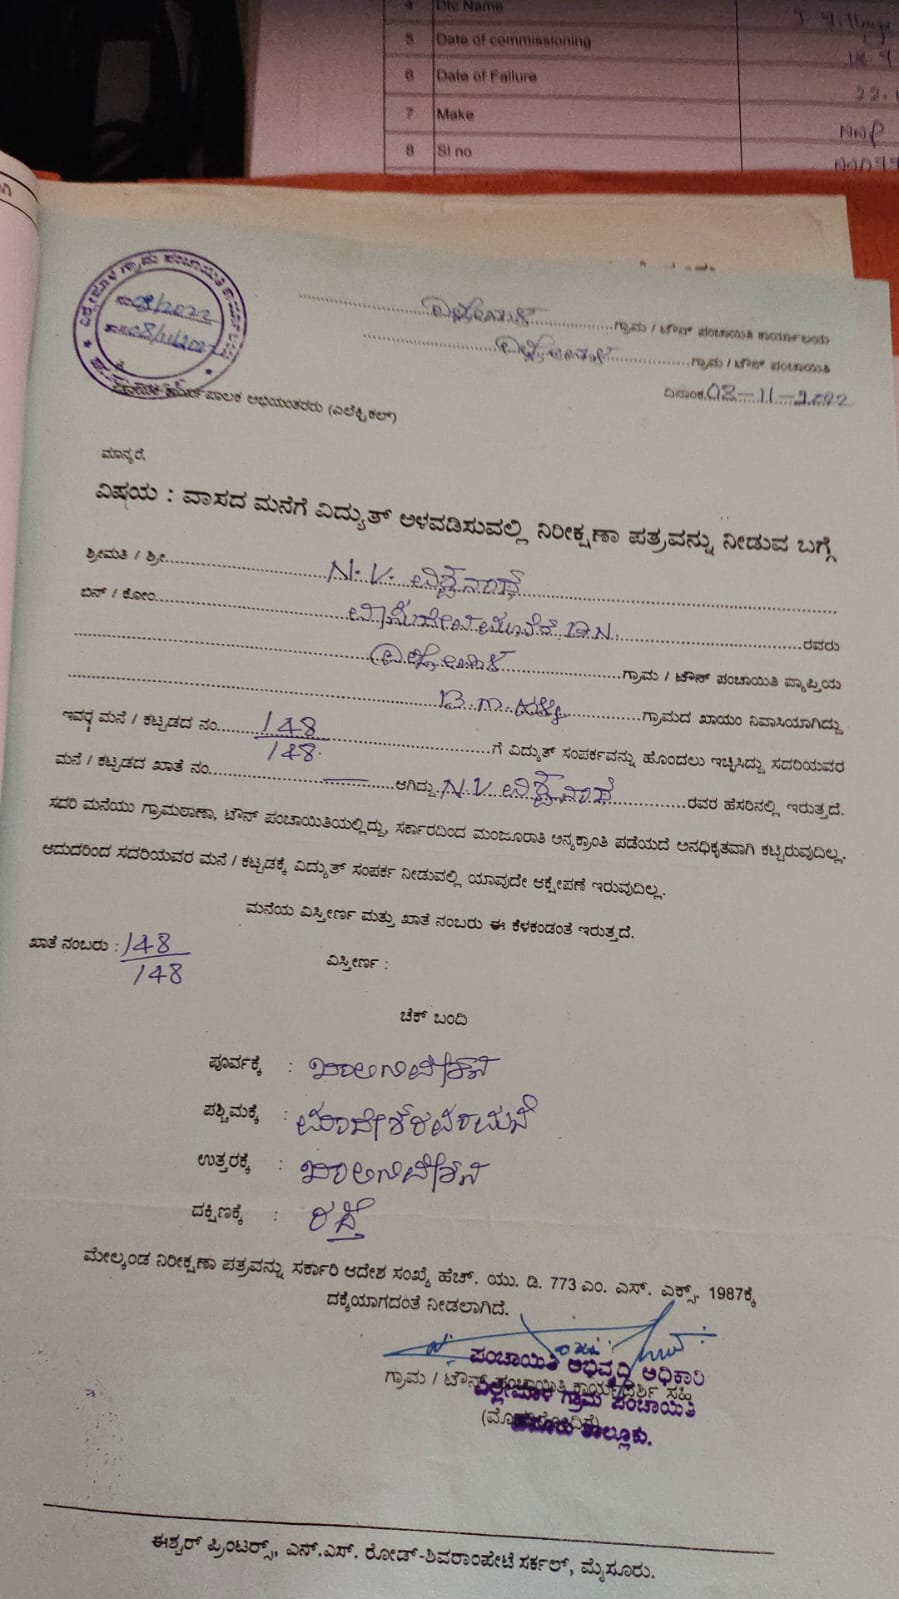 Dtc Name
5 Date of commissioning
6 Date of Failure
7 Make
8 Sl no
ಗ್ರಾಮ / ಟೌನ್ ಪಂಚಾಯಿತಿ ಕಾರ್ಯಾಲಯ
ಗ್ರಾಮ / ಟೌನ್ ಪಂಚಾಯಿತಿ
ದಿನಾಂಕ.08-11-2022
ಪಾಲಕ ಅಭಿಯಂತರರು (ಎಲೆಕ್ಟ್ರಿಕಲ್)
ಮಾನ್ಯರೆ,
ವಿಷಯ : ವಾಸದ ಮನೆಗೆ ವಿದ್ಯುತ್ ಅಳವಡಿಸುವಲ್ಲಿ ನಿರೀಕ್ಷಣಾ ಪತ್ರವನ್ನು ನೀಡುವ ಬಗ್ಗೆ
ಶ್ರೀಮತಿ / ಶ್ರೀ N.V. ವಿಶ್ವನಾಥ್
ಬಿನ್ / ಕೋಂ ರವರು
ಗ್ರಾಮ / ಟೌನ್ ಪಂಚಾಯಿತಿ ವ್ಯಾಪ್ತಿಯ
ಗ್ರಾಮದ ಖಾಯಂ ನಿವಾಸಿಯಾಗಿದ್ದು
ಇವರ ಮನೆ / ಕಟ್ಟಡದ ನಂ. 148/148 ಗೆ ವಿದ್ಯುತ್ ಸಂಪರ್ಕವನ್ನು ಹೊಂದಲು ಇಚ್ಛಿಸಿದ್ದು ಸದರಿಯವರ
ಮನೆ / ಕಟ್ಟಡದ ಖಾತೆ ನಂ. ಆಗಿದ್ದು. N.V. ವಿಶ್ವನಾಥ್ ರವರ ಹೆಸರಿನಲ್ಲಿ ಇರುತ್ತದೆ.
ಸದರಿ ಮನೆಯು ಗ್ರಾಮಠಾಣಾ, ಟೌನ್ ಪಂಚಾಯಿತಿಯಲ್ಲಿದ್ದು, ಸರ್ಕಾರದಿಂದ ಮಂಜೂರಾತಿ ಅನ್ಯಕ್ರಾಂತಿ ಪಡೆಯದೆ ಅನಧಿಕೃತವಾಗಿ ಕಟ್ಟಿರುವುದಿಲ್ಲ.
ಆದುದರಿಂದ ಸದರಿಯವರ ಮನೆ / ಕಟ್ಟಡಕ್ಕೆ ವಿದ್ಯುತ್ ಸಂಪರ್ಕ ನೀಡುವಲ್ಲಿ ಯಾವುದೇ ಆಕ್ಷೇಪಣೆ ಇರುವುದಿಲ್ಲ.
ಮನೆಯ ವಿಸ್ತೀರ್ಣ ಮತ್ತು ಖಾತೆ ನಂಬರು ಈ ಕೆಳಕಂಡಂತೆ ಇರುತ್ತದೆ.
ಖಾತೆ ನಂಬರು : 148/148 ವಿಸ್ತೀರ್ಣ :
ಚೆಕ್ ಬಂದಿ
ಪೂರ್ವಕ್ಕೆ : ಖಾಲಿ ನಿವೇಶನ
ಪಶ್ಚಿಮಕ್ಕೆ : ಮಾದೇಶರವರ ಮನೆ
ಉತ್ತರಕ್ಕೆ : ಖಾಲಿ ನಿವೇಶನ
ದಕ್ಷಿಣಕ್ಕೆ : ರಸ್ತೆ
ಮೇಲ್ಕಂಡ ನಿರೀಕ್ಷಣಾ ಪತ್ರವನ್ನು ಸರ್ಕಾರಿ ಆದೇಶ ಸಂಖ್ಯೆ ಹೆಚ್. ಯು. ಡಿ. 773 ಎಂ. ಎಸ್. ಎಕ್ಸ್. 1987ಕ್ಕೆ
ದಕ್ಕೆಯಾಗದಂತೆ ನೀಡಲಾಗಿದೆ.
ಪಂಚಾಯಿತಿ ಅಭಿವೃದ್ಧಿ ಅಧಿಕಾರಿ
ಗ್ರಾಮ / ಟೌನ್ ಪಂಚಾಯಿತಿ ಕಾರ್ಯದರ್ಶಿ ಸಹಿ
ಗ್ರಾಮ ಪಂಚಾಯಿತಿ
ತಾಲ್ಲೂಕು.
ಈಶ್ವರ್ ಪ್ರಿಂಟರ್ಸ್, ಎನ್.ಎಸ್. ರೋಡ್-ಶಿವರಾಂಪೇಟೆ ಸರ್ಕಲ್, ಮೈಸೂರು.